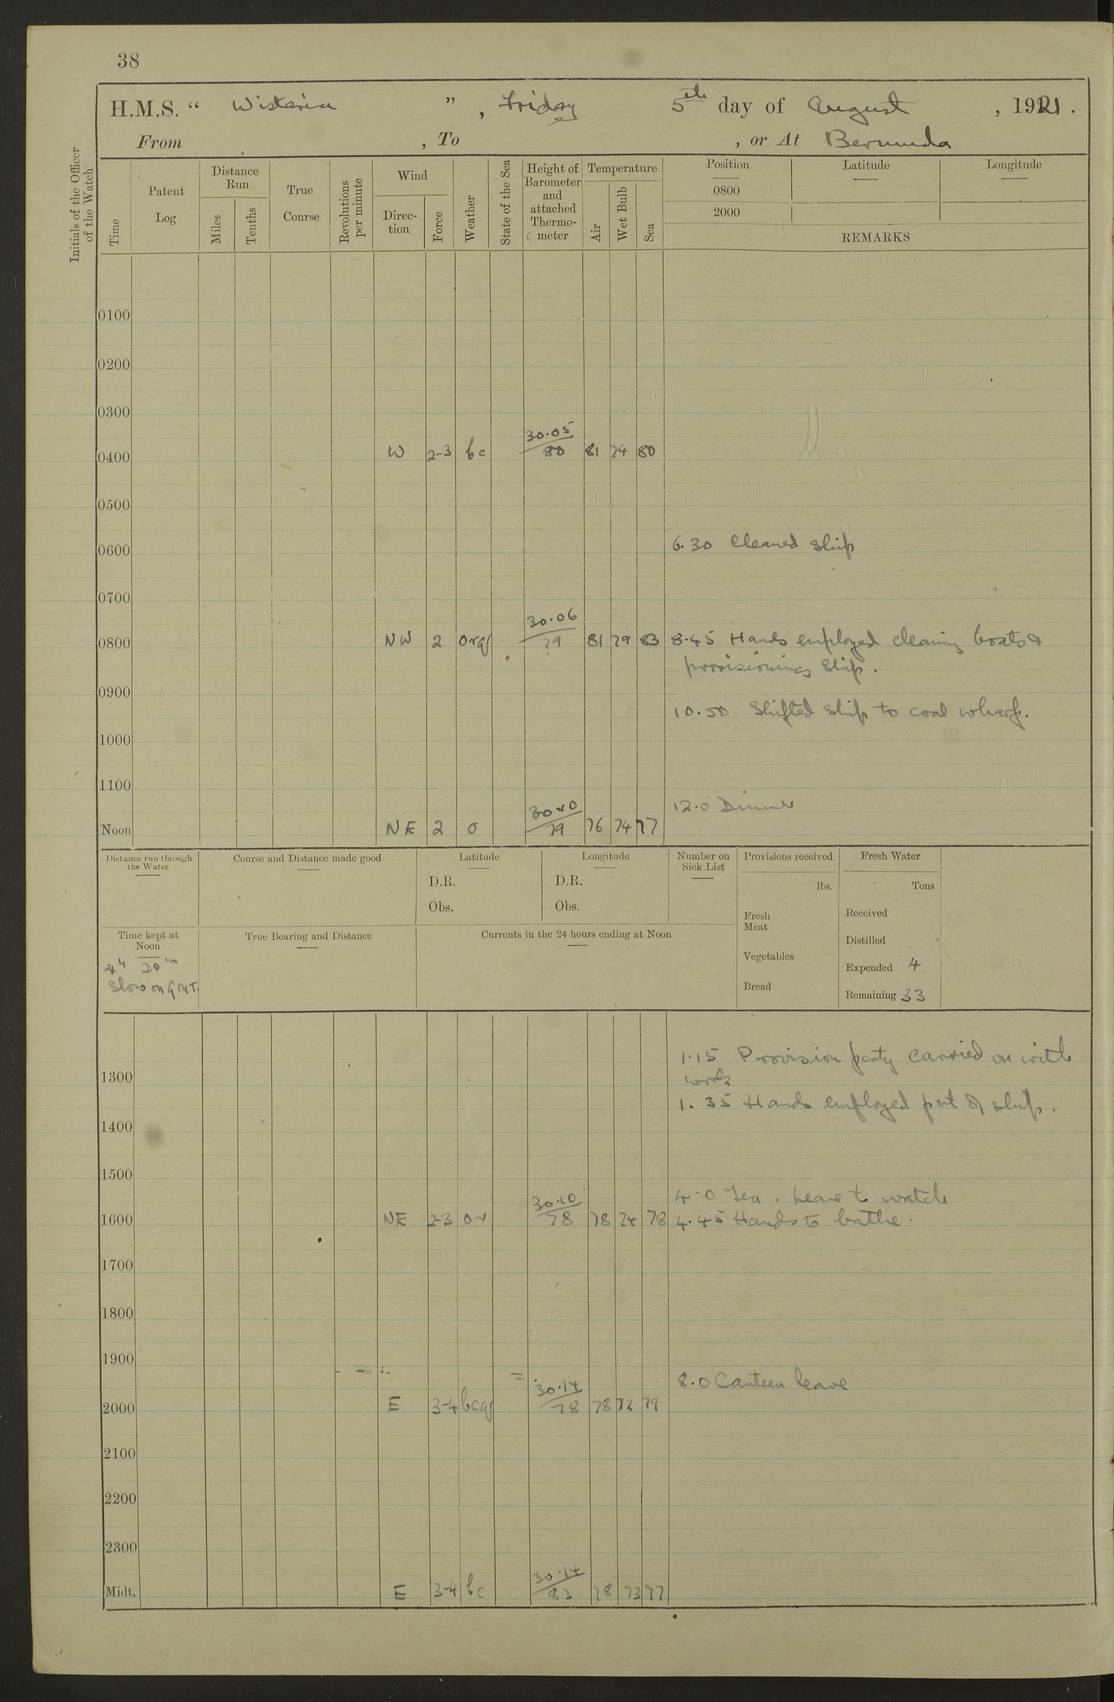 38
H.M.S. " Wistaria ", Friday 5th day of August, 1921.
From , To , or At Bermuda
Initials of the Officer of the Watch
Time
Patent Log
Distance Run
Miles
Tenths
True Course
Revolutions per minute
Wind
Direction
Force
Weather
State of the Sea
Height of Barometer and attached Thermometer
Temperature
Air
Wet Bulb
Sea
Position Latitude Longitude
0800
2000
REMARKS
0100
0200
0300
0400 W 2-3 bc 30.05/80 81 74 80
0500
0600 6.30 Cleaned ship
0700
0800 NW 2 orq 30.06/79 81 79 83 8.45 Hands employed cleaning boats &
provisioning ship.
0900
10.50 Shifted ship to coal wharf.
1000
1100
12.0 Dinner
Noon NE 2 o 79 76 74 77
Distance run through the Water
Course and Distance made good
Latitude
D.R.
Obs.
Longitude
D.R.
Obs.
Number on Sick List
Provisions received
lbs.
Fresh Meat
Vegetables
Bread
Fresh Water
Tons
Received
Distilled
Expended 4
Remaining 33
Time kept at Noon
4h 20m
Slow on G.M.T.
True Bearing and Distance
Currents in the 24 hours ending at Noon
1.15 Provision party carried on with
work
1300
1.35 Hands employed part of ship.
1400
1500
4.0 Tea. Leave to watch
1600 NE 2-3 or 30.10/78 78 74 78 4.45 Hands to bathe.
1700
1800
1900
8.0 Canteen leave
2000 E 3-4 bcq 30.14/78 78 72 79
2100
2200
2300
Midt. E 3-4 bc 30.14/83 78 73 77